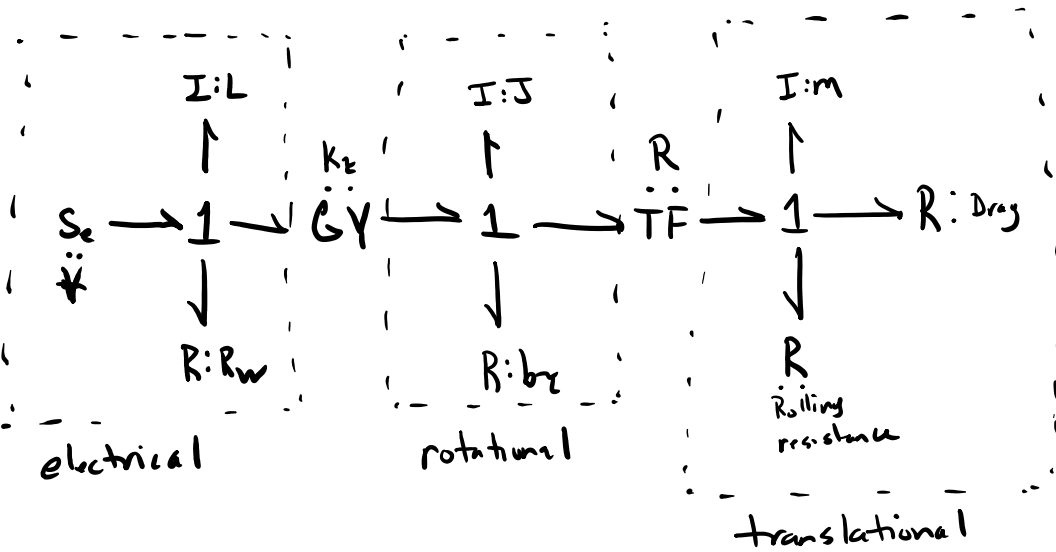 I:L
I:J
I:m
K_t
R
S_e
1
GY
1
TF
1
R: Drag
V
R:R_w
R:b_τ
R
Rolling
resistance
electrical
rotational
translational